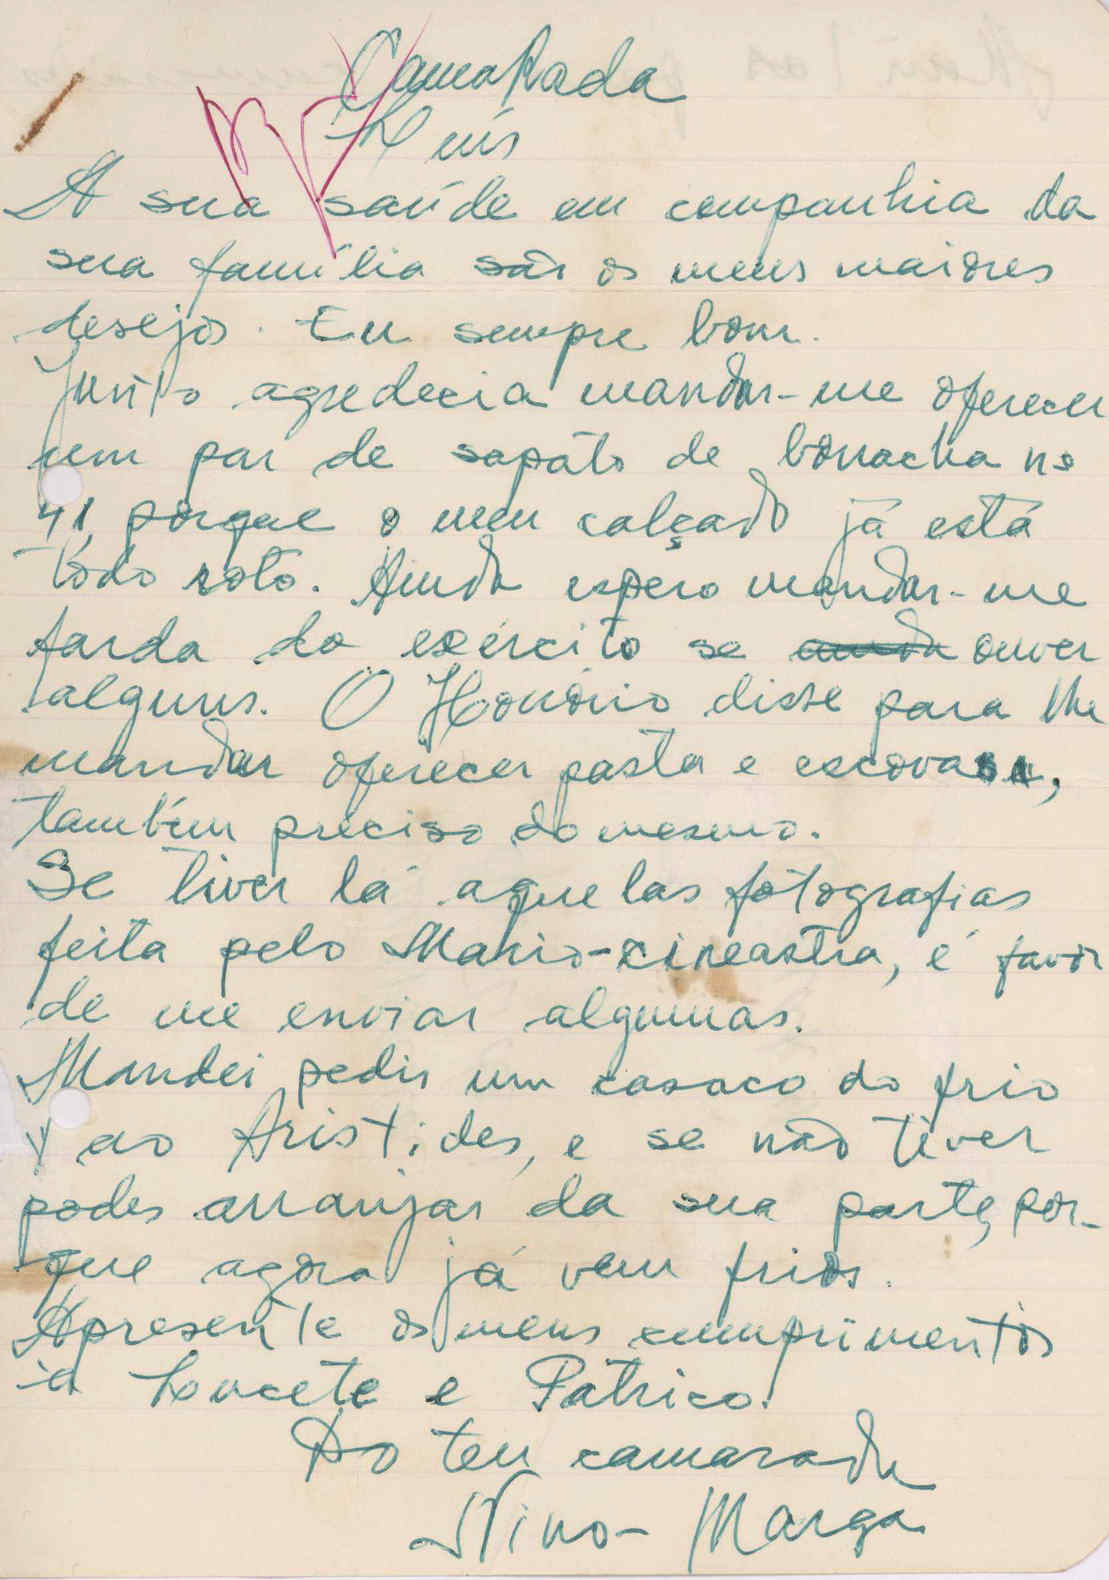 CamaRada
Luís
A sua saúde em companhia da
sua família são os meus maiores
desejos. Eu sempre bom.
Junto agredecia mandar-me oferecer
um par de sapato de borracha nº
41, porque o meu calçado já está
todo roto. Ainda espero mandar-me
farda do exército se ouver
alguns. O Honório disse para lhe
mandar oferecer pasta e escova,
também preciso do mesmo.
Se tiver lá aquelas fotografias
feita pelo Mario-cineastra, é favor
de me enviar algumas.
Mandei pedir um casaco do frio
ao Aristides, e se não tiver
podes arranjar da sua parte, por-
que agora já vem frios.
Apresente os meus cumprimentos
à Loucete e Patrico.
Do teu camarada
Nino - Marga